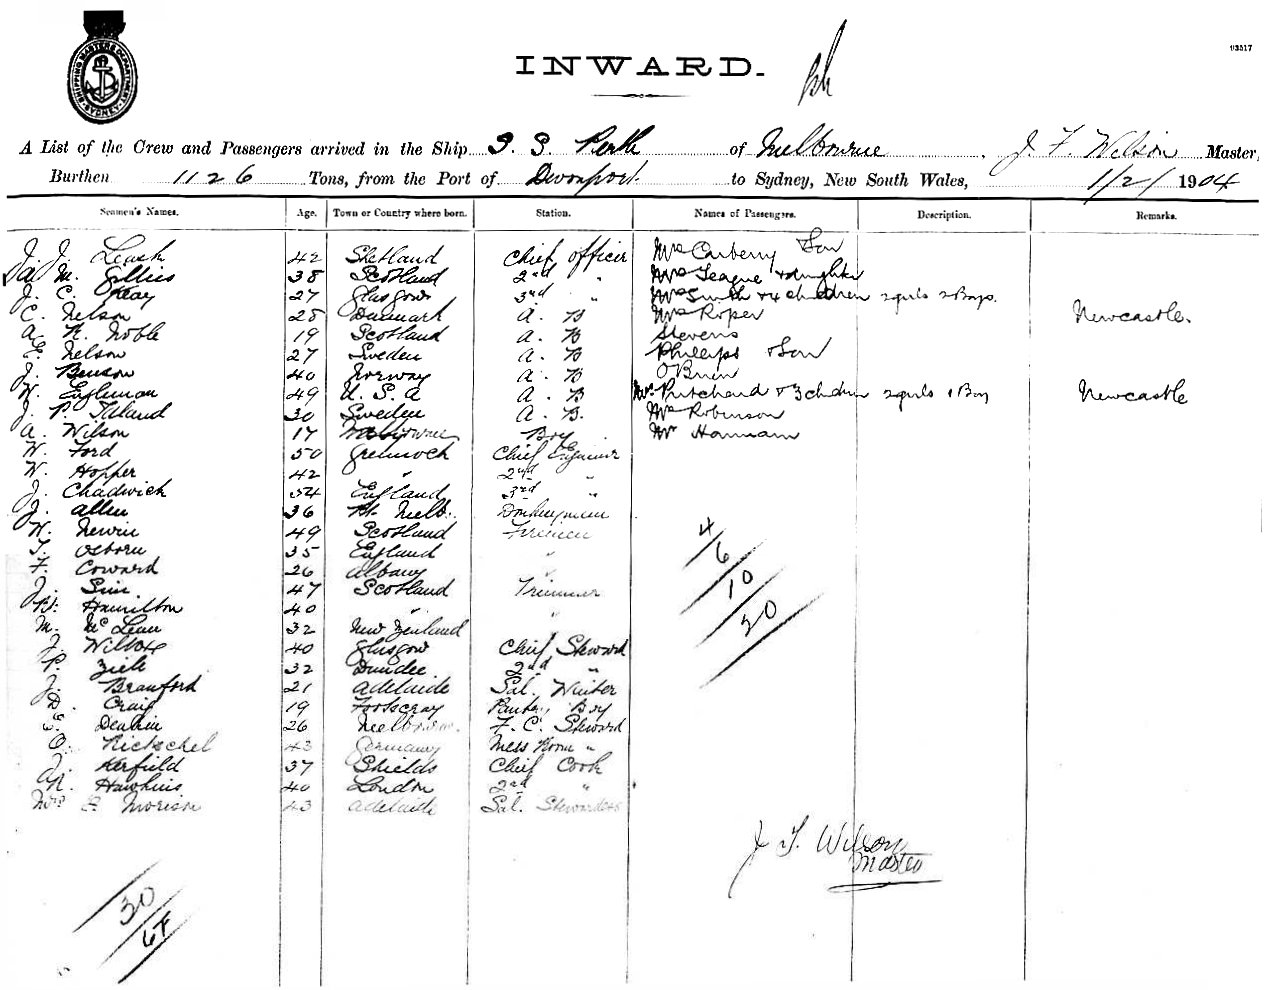 SHIPPING MASTERS DEPARTMENT SYDNEY
93517
INWARD.
A List of the Crew and Passengers arrived in the Ship S. S. Perth of Melbourne, J. F. Wilson Master
Burthen 1126 Tons, from the Port of Devonport to Sydney, New South Wales, 1/2/1904
Seamen's Names. Age. Town or Country where born. Station. Names of Passengers. Description. Remarks.
J. J. Leask 42 Shetland Chief Officer Mrs Carberry Son
A. M. Gillies 38 Scotland 2nd " Mrs League & daughter
J. C. Keay 27 Glasgow 3rd " Mrs Smith & 4 children 2 girls 2 Boys.
C. Nelson 28 Denmark A. B Mrs Roper Newcastle.
A. R. Noble 19 Scotland A. B Stevens
E. Nelson 27 Sweden A. B Phillips & Son
J. Benson 40 Norway A. B O'Brien
W. Engleman 49 U. S. A A. B Mrs Pritchard & 3 children 2 girls 1 Boy Newcastle
J. P. 30 Sweden A. B. Mrs Robinson
A. Wilson 17 Boy Mr Hannam
W. Ford 50 Greenock Chief Engineer
W. Hopper 42 " 2nd "
J. Chadwick 34 England 3rd "
J. Allen 36 Pt. Melb. Donkeyman
W. 49 Scotland Firemen
T. Osborn 35 England "
F. Coward 26 Albany
J. Sim 47 Scotland Trimmer
Hamilton 40 " "
M. McLean 32 New Zealand
J. Wilcox 40 Glasgow Chief Steward
P. 32 Dundee 2nd "
J. Branford 21 Adelaide Sal. Waiter
D. Craig 19 Footscray Pantry Boy
E. Deakin 26 Melbourne F. C. Steward
O. Nietschel 43 Germany Mess Room "
J. Kerfield 37 Shields Chief Cook
N. Hawkins 40 London 2nd "
Mrs E. Morison 43 Adelaide Sal. Stewardess
4/6
10
20
J. F. Wilson
Master
30